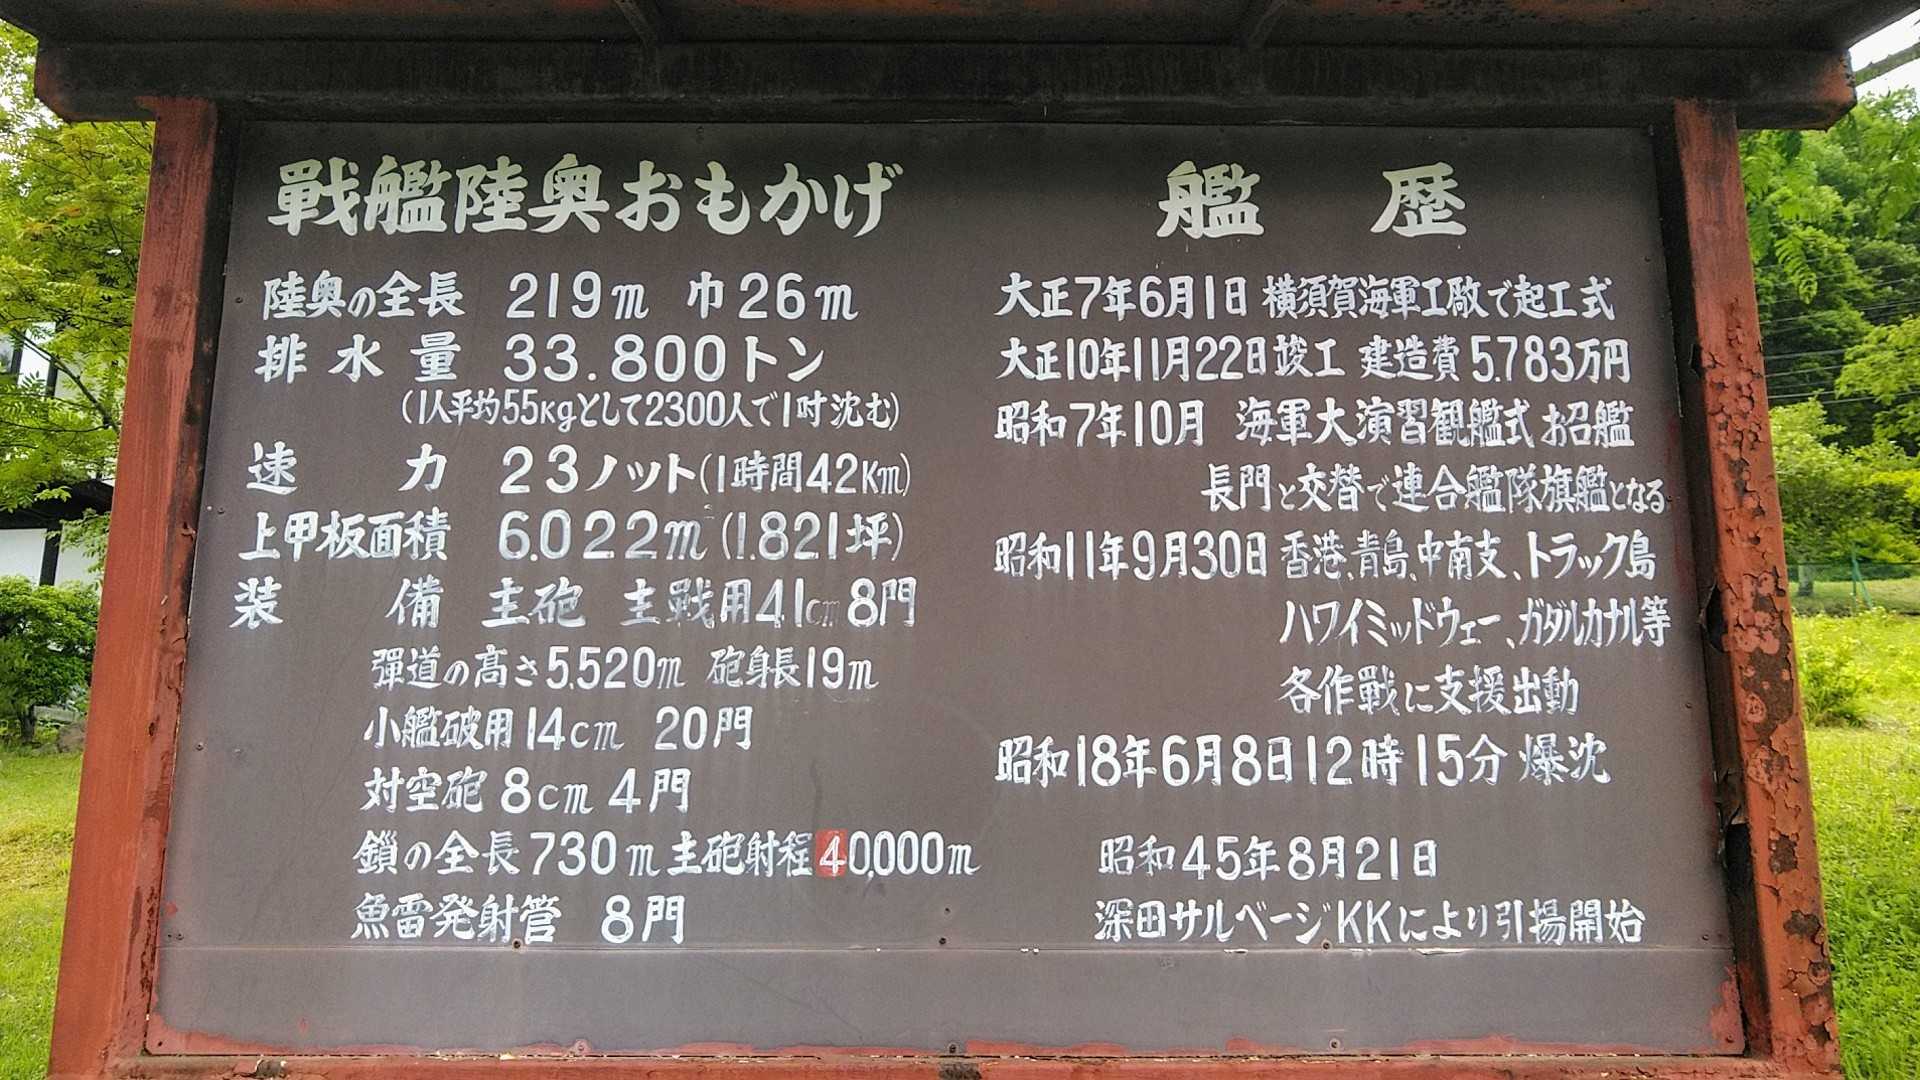 戰艦陸奥おもかげ
陸奥の全長 219m 巾26m
排水量 33.800トン
(1人平均55Kgとして2300人で1吋沈む)
速力 23ノット(1時間42Km)
上甲板面積 6.022m(1.821坪)
装備 主砲 主戰用41cm8門
彈道の高さ5,520m 砲身長19m
小艦破用14cm 20門
対空砲8cm4門
鎖の全長730m主砲射程40,000m
魚雷発射管 8門
艦歴
大正7年6月1日 横須賀海軍工廠で起工式
大正10年11月22日竣工 建造費5.783万円
昭和7年10月 海軍大演習観艦式お召艦
長門と交替で連合艦隊旗艦となる
昭和11年9月30日 香港、青島、中南支、トラック島
ハワイミッドウェー、ガダルカナル等
各作戰に支援出動
昭和18年6月8日12時15分 爆沈
昭和45年8月21日
深田サルベージKKにより引揚開始